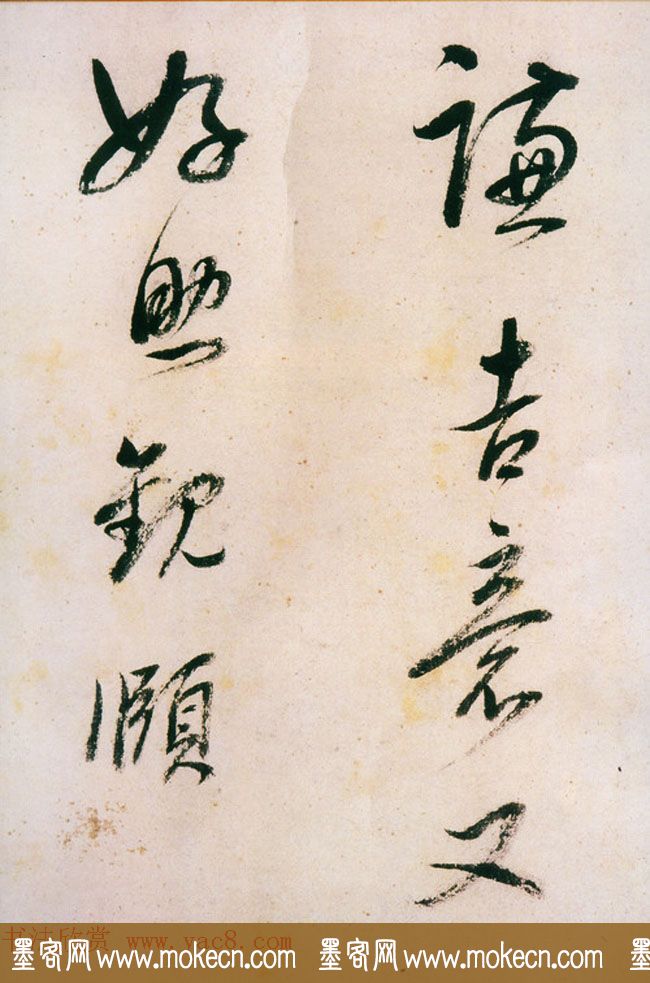 謙吉又
好照觀頤
书法欣赏 www.yac8.com
墨客网 www.mokecn.com 墨客网 www.mokecn.com